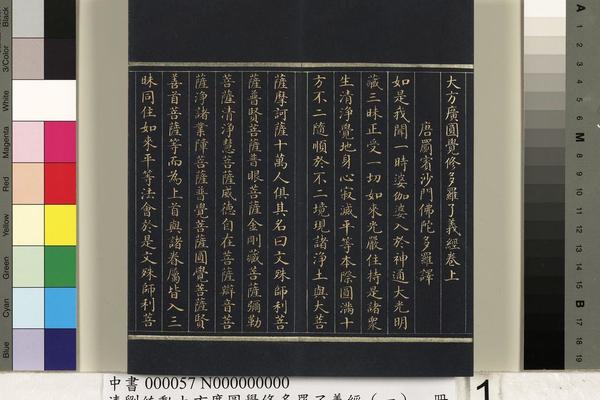 大方廣圓覺修多羅了義經卷上
唐罽賓沙門佛陀多羅譯
如是我聞一時婆伽婆入於神通大光明
藏三昧正受一切如來光嚴住持是諸衆
生清淨覺地身心寂滅平等本際圓滿十
方不二隨順於不二境現諸淨土與大菩
薩摩訶薩十萬人俱其名曰文殊師利菩
薩普賢菩薩普眼菩薩金剛藏菩薩彌勒
菩薩清淨慧菩薩威德自在菩薩辯音菩
薩淨諸業障菩薩普覺菩薩圓覺菩薩賢
善首菩薩等而為上首與諸眷屬皆入三
昧同住如來平等法會於是文殊師利菩
中書 000057 N000000000
大方廣圓覺修多羅了義經(一) 冊
1
Black
3/Color
White
Magenta
Red
Yellow
Green
Cyan
Blue
A
1
2
3
4
5
6
M
8
9
10
11
12
13
14
15
B
17
18
19